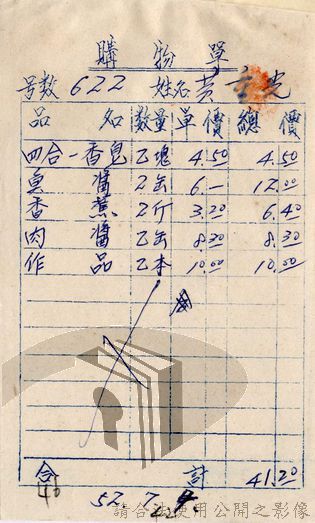 購物單
号数 622 姓名 黃
品名 数量 單價 總價
四合一香皂 乙塊 4.50 4.50
臭醬 2缶 6.— 12.00
香蕉 2斤 3.20 6.40
肉醬 乙缶 8.30 8.30
作品 乙本 10.00 10.00
合計 41.20
52.7.
請合法使用公開之影像